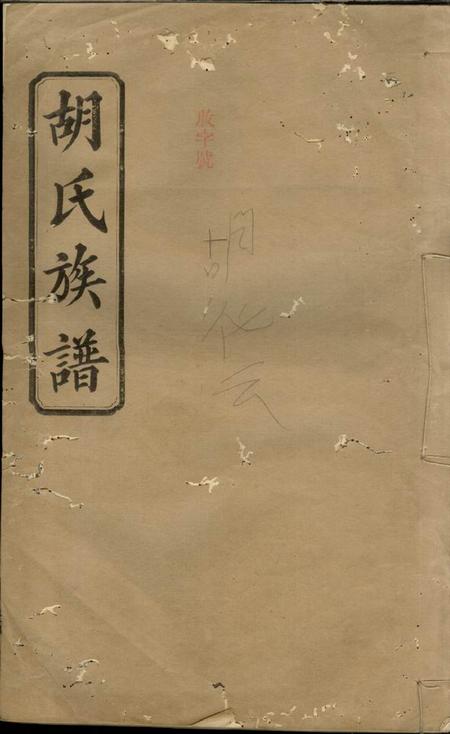 胡氏族譜
字號
胡化云